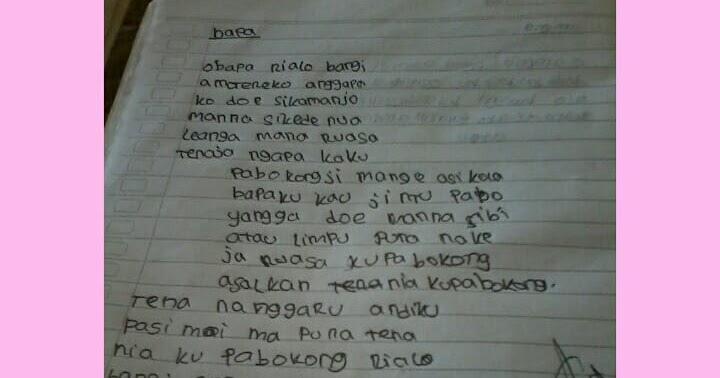 bapa
obapa rialo bangi
amoreneko anggapa
ko doe sikamanjo
manna sikede nua
Leanga mana Ruasa
Tenaja ngapa kaku
pabokongsi mange asikola
bapaku kau ji mu pabo
yangga doe manna sibi
atau Limpu puna nake
ja Ruasa kupabokong
asalkan tenania kupabokong.
Tena nanggaru andiku
pasi mai ma puna tena
nia ku pabokong Rialo